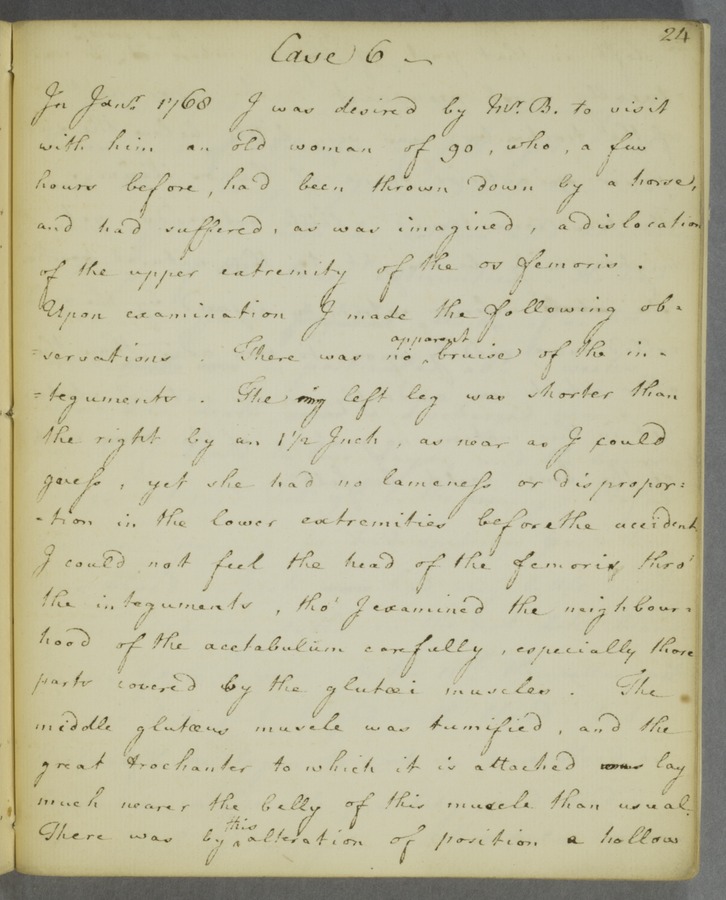 24
Case 6 ~
In Janr. 1768 I was desired by Mr. B. to visit
with him an old woman of 90, who, a few
hours before, had been thrown down by a horse,
and had suffered, as was imagined, a dislocation
of the upper extremity of the os femoris.
Upon examination I made the following ob-
-servations. There was no apparent bruise of the in-
-teguments. The left leg was shorter than
the right by an 1 1/2 Inch, as near as I could
guess; yet she had no lameness or dispropor:
-tion in the lower extremities before the accident
I could not feel the head of the femoris thro'
the integuments, tho' I examined the neighbour:
hood of the acetabulum carefully, especially those
parts covered by the glutæi muscles. The
middle glutæus muscle was tumified, and the
great trochanter to which it is attached lay
much nearer the belly of this muscle than usual.
There was by this alteration of position a hollow